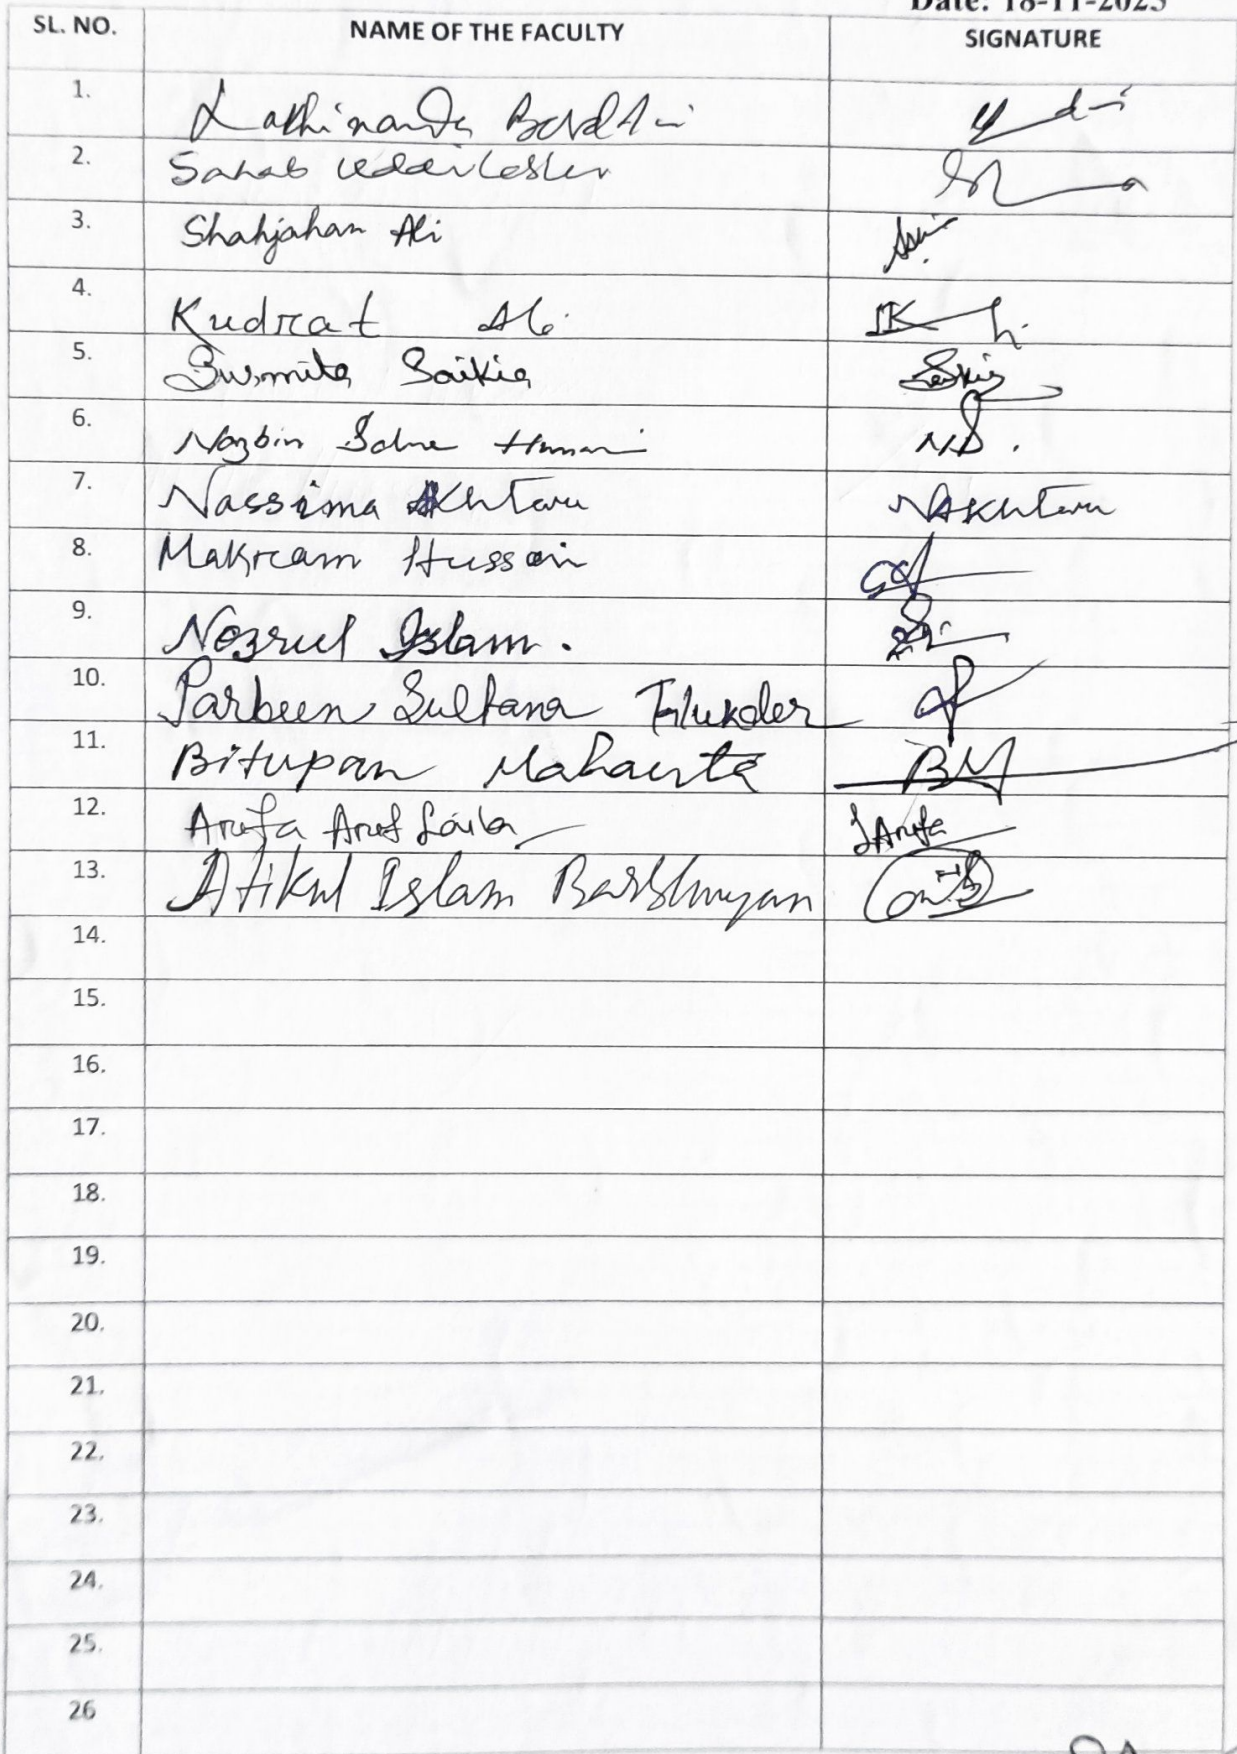 Date: 18-11-2025
SL. NO. NAME OF THE FACULTY SIGNATURE
1.
2. Sahab
3. Shahjahan Ali
4. Kudrat Ali
5. Susmita Saikia Saikia
6. Nazbin N.S.
7. Nassima Akhtara NAkhtara
8. Makram Hussain
9. Nozrul Islam.
10. Parbeen Sultana Talukder
11. Bitupan Mahanta BM
12. Arufa Aruf Laila Arufa
13. Atikul Islam Barbhuyan
14.
15.
16.
17.
18.
19.
20.
21.
22.
23.
24.
25.
26